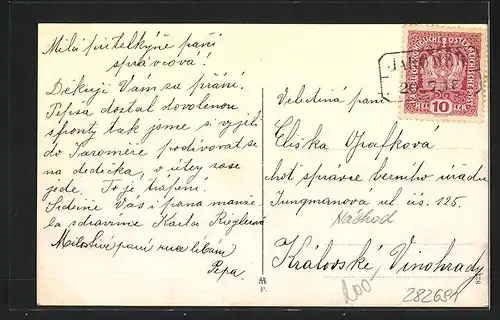 Milá přítelkyně paní
správcová!
Děkuji Vám za přání.
Pepísa dostal dovolenou
z fronty tak jsme si vyjeli
do Jaroměře podívovat se
na dedečka, v úterý zase
jede. To je trápení.
Srdečně Vás i pana manže-
la zdravíme Karla Röglerová
Milostivé paní ruce líbám
Pepa.
Velectěná paní
Eliška Opafková
choť správce berního úřadu
Jungmanová ul. čís. 125.
Náchod
Královské Vinohrady
100-
28268A
M
P.
10 HELLER 10